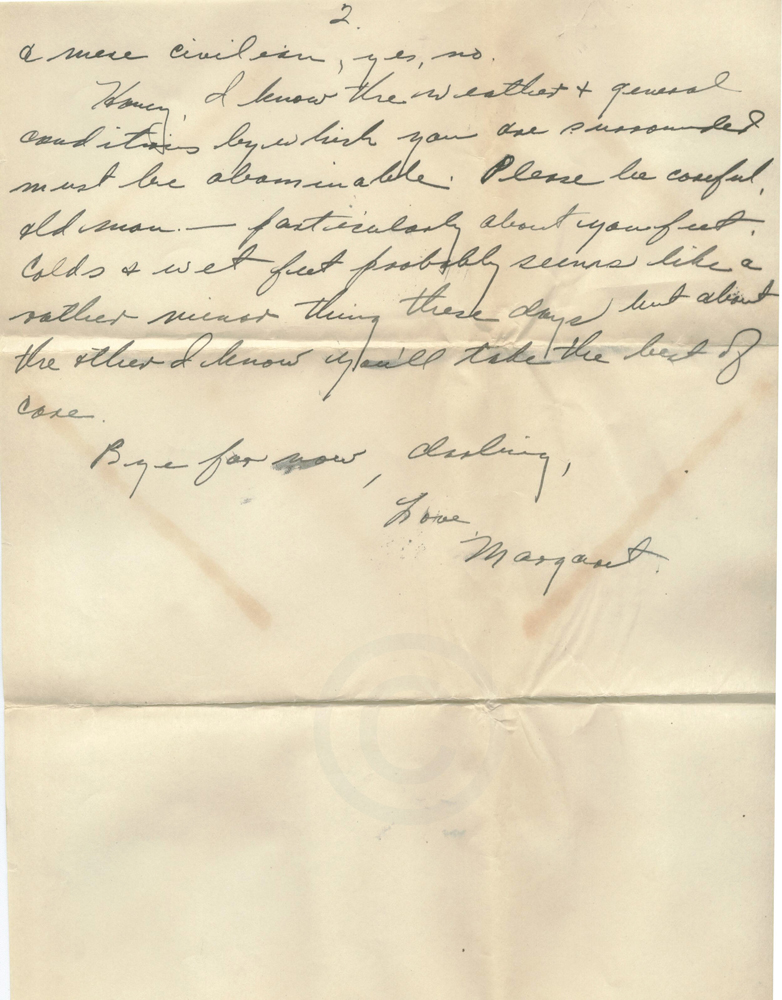 2.
a mere civilian, yes, no.
Honey, I know the weather & general
conditions by which you are surrounded
must be abominable. Please be careful,
old man. — particularly about your feet.
Colds & wet feet probably seems like a
rather minor thing these days but about
the other I know you'll take the best of
care.
Bye for now, darling,
Love,
Margaret.
©